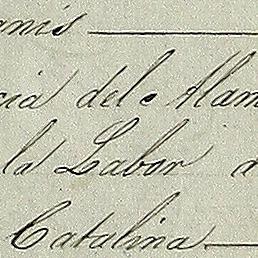 anis
cia del Alam
la Labor d
Catalina